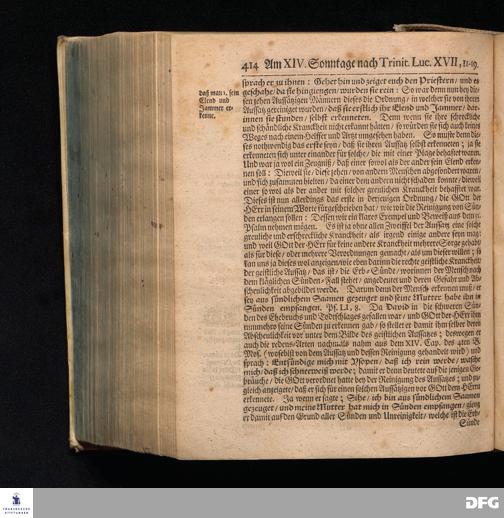 414 Am XIV. Sonntage nach Trinit. Luc. XVII, 11-19.
sprach er zu ihnen: Gehet hin und zeiget euch den Priestern, und es
geschahe, da sie hingiengen, wurden sie rein: So war denn nun bey die-
sen zehen Aussätzigen Männern dieses die Ordnung, in welcher sie von ihren
Aussatz gereiniget wurden, daß sie erstlich ihr Elend und Jammer, dar-
innen sie stunden, selbst erkenneten. Denn wenn sie ihre schreckliche
und schändliche Kranckheit nicht erkannt hätten, so würden sie sich auch keines
Weges nach einem Helffer und Artzt umgesehen haben. So muste denn die-
ses nothwendig das erste seyn, daß sie ihren Aussatz selbst erkenneten; ja sie
erkenneten sich unter einander für solche, die mit einer Plage behafftet waren.
Und war ja wol ein Zeugniß, daß einer sowol als der ander sein Elend erken-
nen soll: Dieweil sie, diese zehen, von andern Menschen abgesondert waren,
und sich zusammen hielten, da einer dem andern nicht schaden konnte, dieweil
einer so wol als der ander mit solcher greulichen Kranckheit behafftet war.
Dieses ist nun allerdings das erste in derjenigen Ordnung, die GOtt der
HErr in seinem Worte fürgeschrieben hat, wie wir die Reinigung von Sün-
den erlangen sollen: Dessen wir ein klares Exempel und Beweiß aus dem 51.
Psalm nehmen mögen. Es ist ja ohne allen Zweiffel der Aussatz eine solche
greuliche und erschreckliche Kranckheit, als irgend einige andere seyn mag:
und weil GOtt der HErr für keine andere Kranckheit mehrere Sorge gehabt,
als für diese, oder mehrere Verordnungen gemacht, als um dieser willen; so
kan uns ja dieses wol anzeigen, wie eben darum die rechte geistliche Kranckheit,
der geistliche Aussatz, das ist, die Erb-Sünde, worinnen der Mensch nach
dem kläglichen Sünden-Fall stehet, angedeutet und deren Gefahr und Ab-
scheulichkeit abgebildet werde. Darum denn der Mensch erkennen muß, er
sey aus sündlichem Saamen gezeuget und seine Mutter habe ihn in
Sünden empfangen. Ps. LI, 8. Da David in die schweren Sün-
den des Ehebruchs und Todtschlages gefallen war, und GOtt der HErr ihm
nunmehro seine Sünden zu erkennen gab, so stellet er damit ihm selber deren
Abscheulichkeit vor unter dem Bilde des geistlichen Aussatzes; deswegen er
auch die redens-Arten nachmals nahm aus dem XIV. Cap. des 4ten B.
Mos. (woselbst von dem Aussatz und dessen Reinigung gehandelt wird) und
sprach: Entsündige mich mit Ysopen, daß ich rein werde, wasche
mich, daß ich schneeweiß werde; damit er denn deutete auf die jenigen Ge-
bräuche, die GOtt verordnet hatte bey der Reinigung des Aussatzes; und zu-
gleich anzeigete, daß er sich für einen solchen Aussätzigen vor GOtt dem HErrn
erkennete. Ja wenn er sagte; Sihe, ich bin aus sündlichem Saamen
gezeuget, und meine Mutter hat mich in Sünden empfangen, gieng
er damit auf den Grund aller Sünden und Unreinigkeit, welche ist die Erb-
Sünde
daß man 1. sein
Elend und
Jammer er-
kenne.
FRANCKESCHE
STIFTUNGEN
DFG